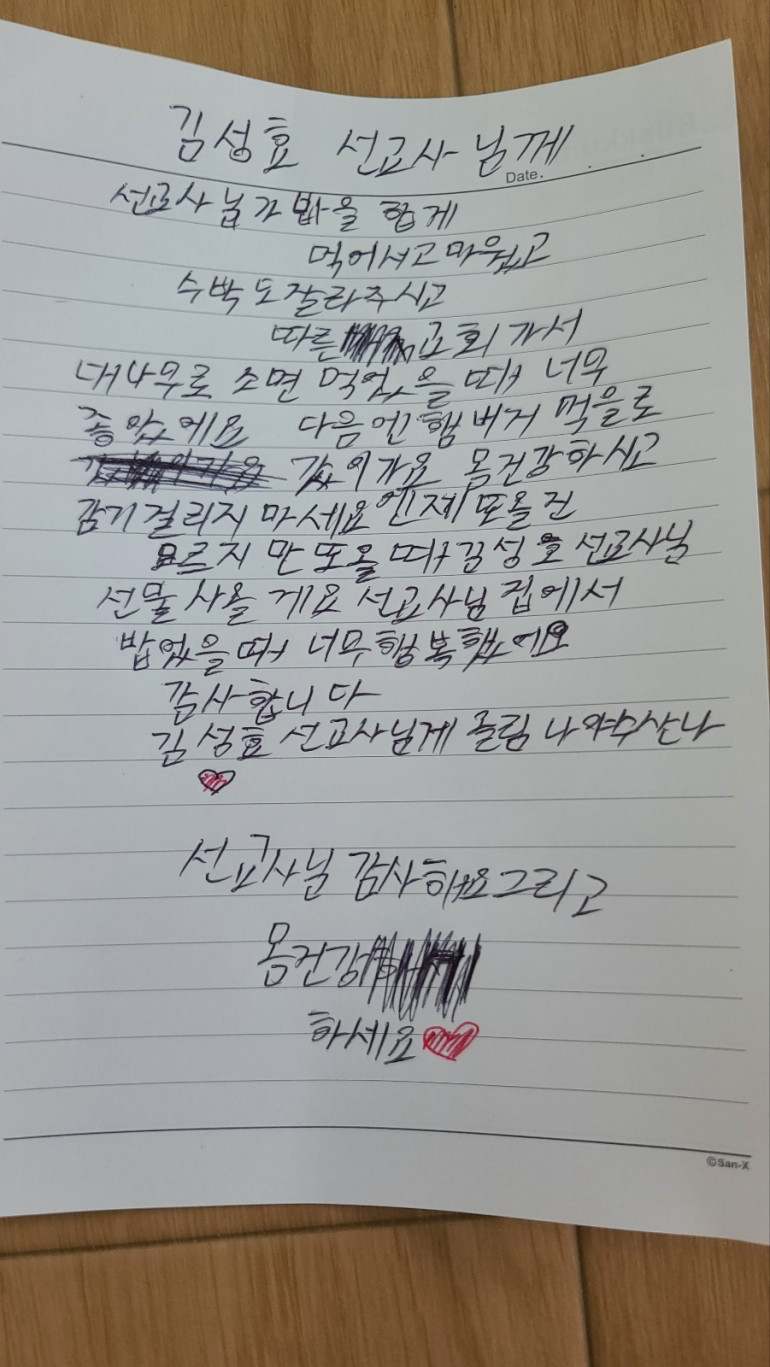 김성효 선교사님께
Date.
선교사님가 밥을 함게
먹어서고마웠고
수박도잘라주시고
따른 교회 가서
대나무로 소면 먹었을 때 너무
좋았에요 다음엔 햄버거 먹을로
갔이가요 몸건강하시고
감기걸리지 마세요 엔제 또올진
모르지 만 또올 때 김성호 선교사님
선물 사올 게요 선교사님 집에서
밥었을때 너무행복했에요
감사합니다
김성효 선교사님게 올림 나야수산나
선교사님 감사해요그리고
몸건강
하세요
©San-X